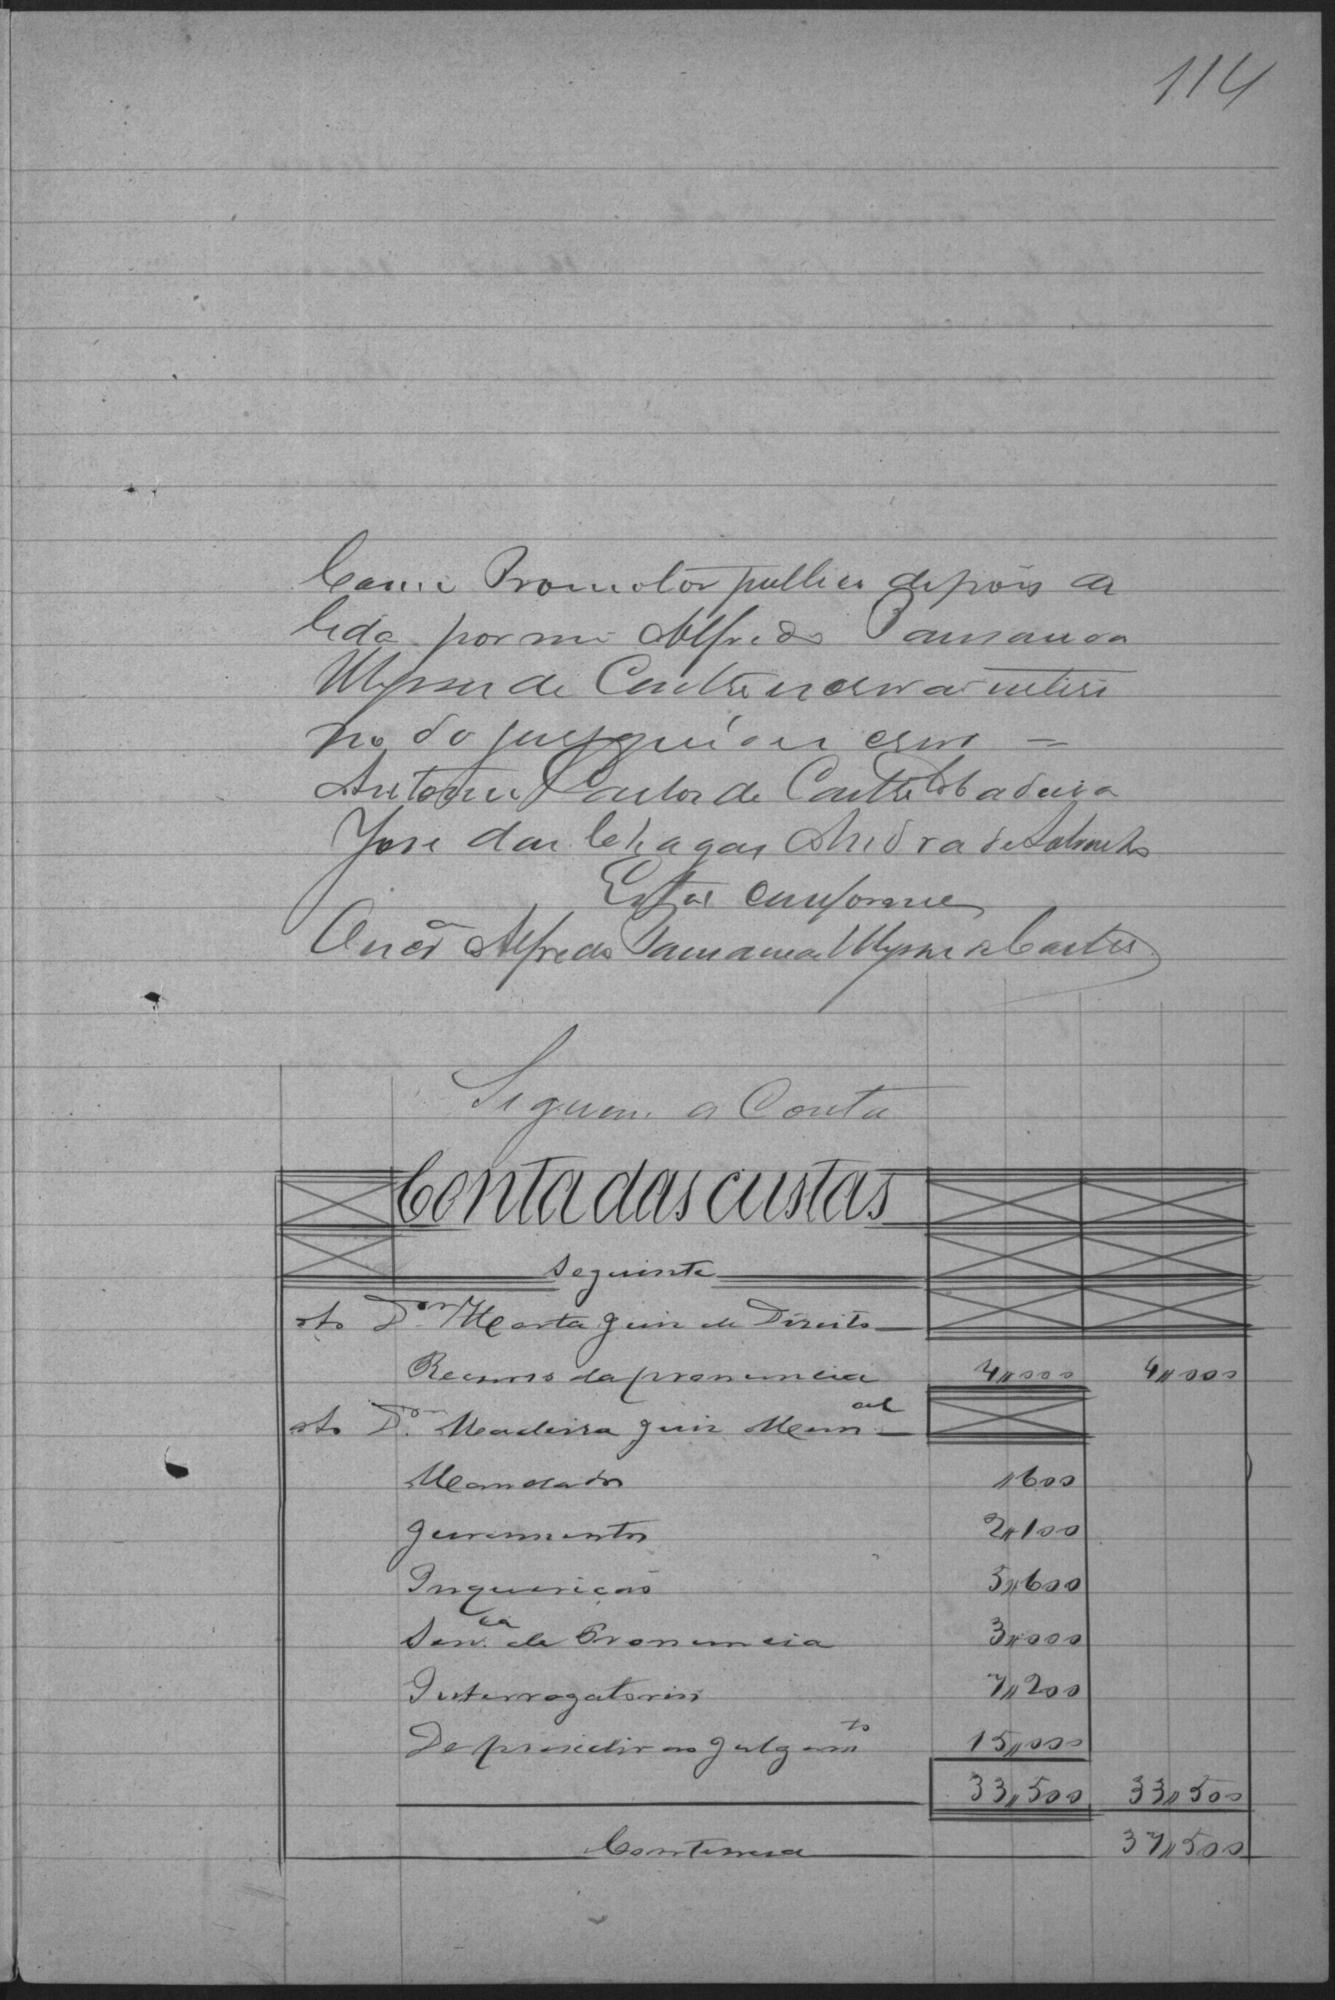 114
Com o Promotor publico depois de
lida por mi Alfredo Pausanea
Ulysses de Castro escrivão interi
no do jury que o escrevi –
Antonio Carlos de Castro Madeira
José das Chagas Andrade
Está conforme
O escrão Alfredo Pausanea Ulysses de Castro
Segue a Conta
Conta das custas
Seguinte
Ao Dor Motta Juiz de Direito
Recurso da pronuncia 4,,000 4,,000
Ao Dor Madeira Juiz Munal
Mandados ,,600
Juramentos 2,,100
Inquirições 5,,600
Senca de Pronuncia 3,,000
Interrogatorios 7,,200
De presidir ao Julgamto 15,,000
33,,500 33,,500
Continua 37,,500